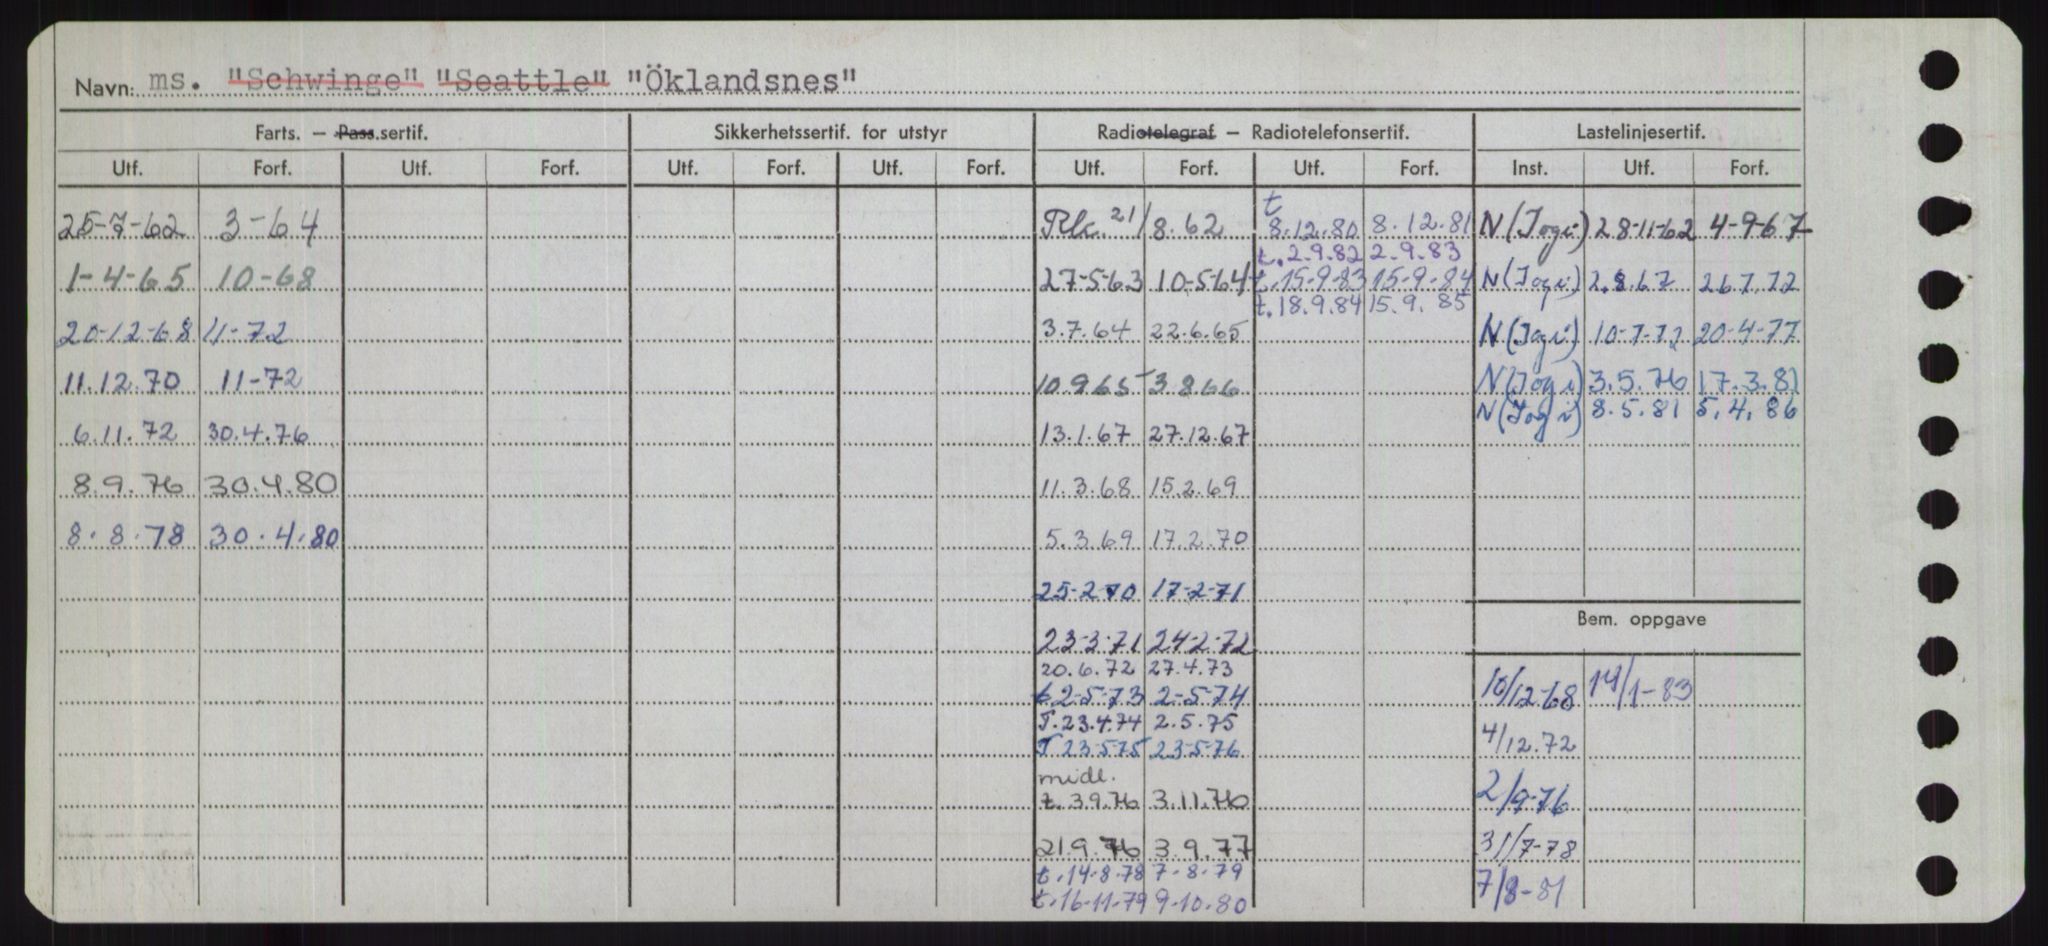 Navn: ms. "Schwinge" "Seattle" "Öklandsnes"
Farts. — Pass.sertif. Sikkerhetssertif. for utstyr Radiotelegraf — Radiotelefonsertif. Lastelinjesertif.
Utf. Forf. Utf. Forf. Utf. Forf. Utf. Forf. Utf. Forf. Utf. Forf. Inst. Utf. Forf.
t
25-7-62 3-64 Rk. 21/8.62 8.12.80 8.12.81 N (Jogi) 28-11-62 4-9-67
t. 2.9.82 2.9.83
1-4-65 10-68 27-5-63 10-5-64 t. 15-9-83 15-9-84 N (Jogi) 2.8.67 26.7.72
t. 18.9.84 15.9.85
20-12-68 11-72 3.7.64 22.6.65 N (Jogi) 10-7-72 20-4-77
11.12.70 11-72 10.9.65 3.8.66 N (Jogi) 3.5.76 17.3.81
N (Jogi) 8.5.81 5.4.86
6.11.72 30.4.76 13.1.67 27.12.67
8.9.76 30.4.80 11.3.68 15.2.69
8.8.78 30.4.80 5.3.69 17.2.70
25-2-70 17-2-71
Bem. oppgave
23-3-71 24-2-72
20.6.72 27.4.73
t 2-5-73 2-5-74 10/12-68 14/1-83
T. 23.4.74 2.5.75
T 23-5-75 23-5-76 4/12.72
midl.
t. 3.9.76 3.11.76 2/9-76
21.9.76 3.9.77 31/7-78
t. 14-8-78 7-8-79
t. 16-11-79 9-10-80 7/8-81